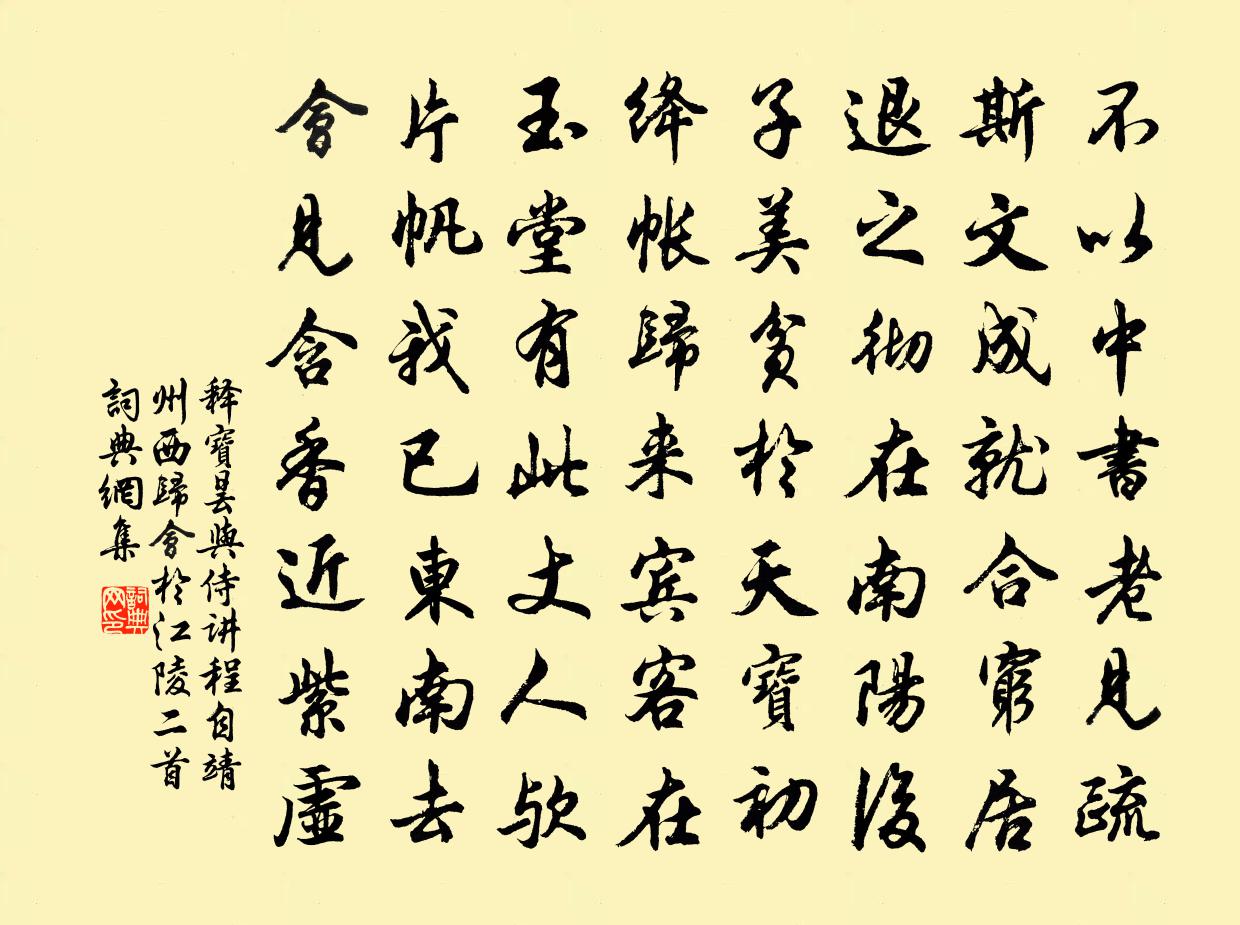 不以中書老見疏
斯文成就合窮居
退之彻在南陽後
子美貧於天寶初
绛帐歸来宾客在
玉堂有此丈人欤
片帆我已東南去
會見含香近紫虛
释寶昙與侍讲程自靖
州西歸會於江陵二首
詞典網集
詞典
网印